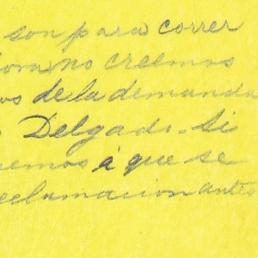 son para correr
ora, no creemos
os de la demanda
Delgado. Si
emos á que se
reclamacion antes